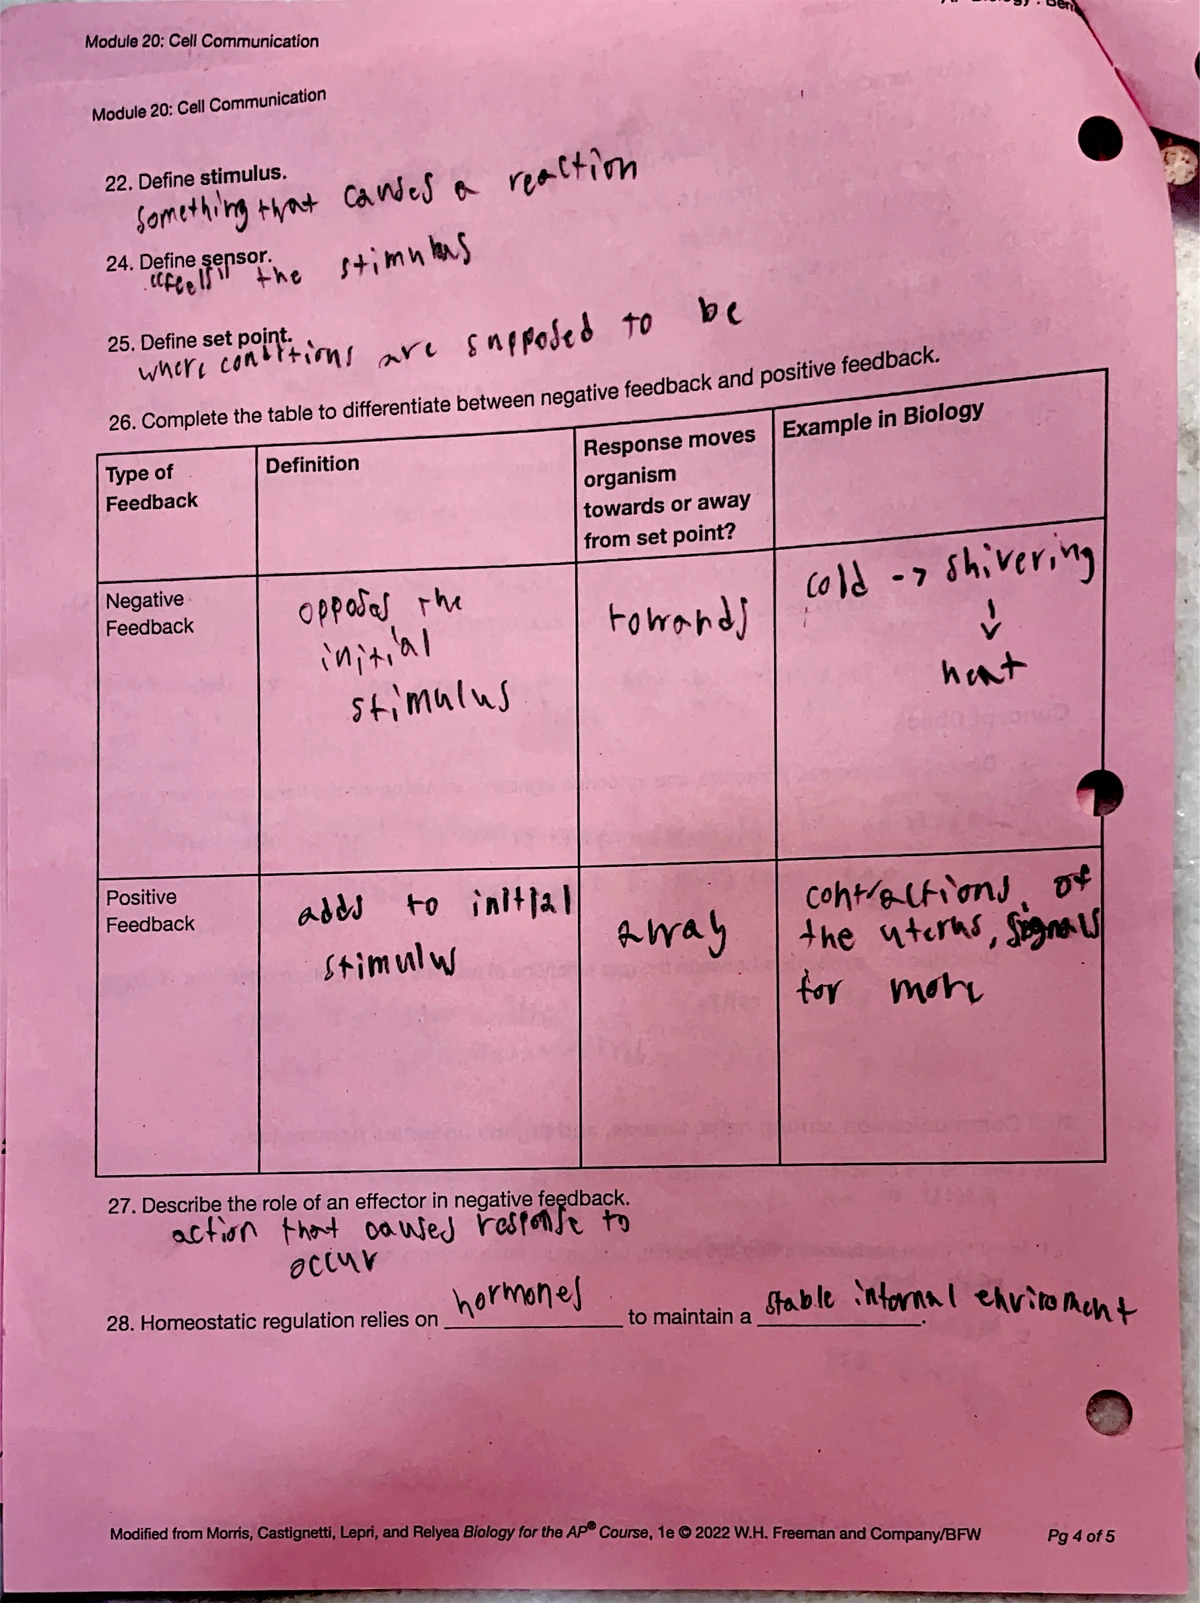 Module 20: Cell Communication
Module 20: Cell Communication
22. Define stimulus.
something that causes a reaction
24. Define sensor.
"feels" the stimulus
25. Define set point.
where conditions are supposed to be
26. Complete the table to differentiate between negative feedback and positive feedback.
Type of
Feedback
Definition
Response moves
organism
towards or away
from set point?
Example in Biology
Negative
Feedback
opposes the
initial
stimulus
towards
cold -> shivering
↓
heat
Positive
Feedback
adds to initial
stimulus
away
contractions of
the uterus, signals
for more
27. Describe the role of an effector in negative feedback.
action that causes response to
occur
28. Homeostatic regulation relies on hormones to maintain a stable internal enviroment.
Modified from Morris, Castignetti, Lepri, and Relyea Biology for the AP® Course, 1e © 2022 W.H. Freeman and Company/BFW
Pg 4 of 5